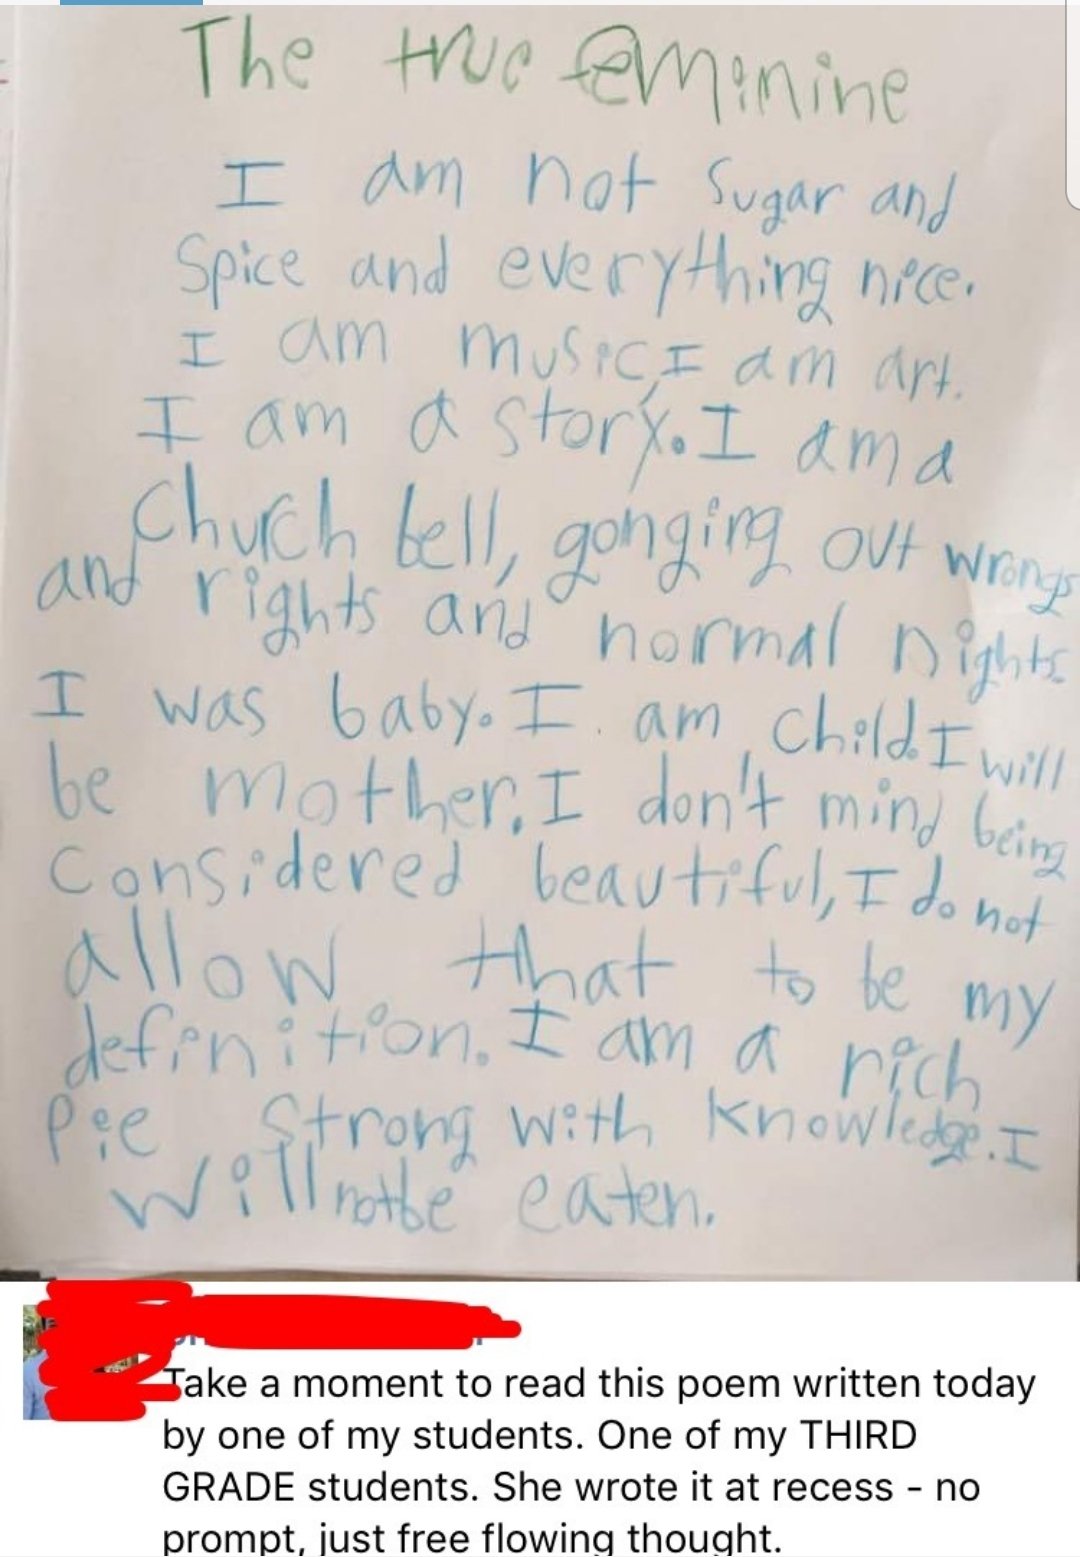 The true feminine
I am not Sugar and
Spice and everything nice.
I am music, I am art.
I am a story. I am a
Church bell, gonging out wrongs
and rights and normal nights.
I was baby. I am child. I will
be mother. I don't mind being
Considered beautiful, I do not
allow that to be my
definition. I am a rich
Pie strong with knowledge. I
will not be eaten.
Take a moment to read this poem written today
by one of my students. One of my THIRD
GRADE students. She wrote it at recess - no
prompt, just free flowing thought.